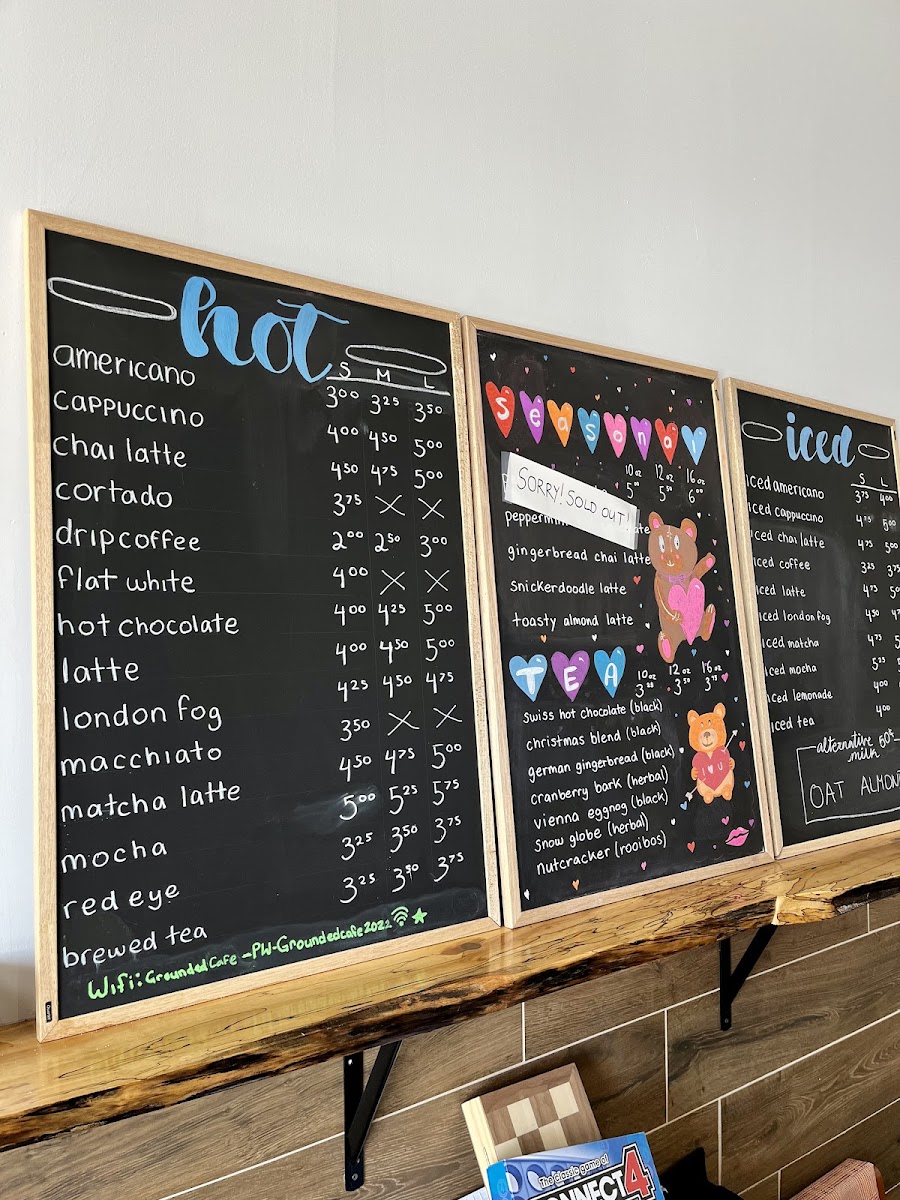 hot
S M L
americano 3⁰⁰ 3²⁵ 3⁵⁰
cappuccino 4⁰⁰ 4⁵⁰ 5⁰⁰
chai latte 4⁵⁰ 4⁷⁵ 5⁰⁰
cortado 3⁷⁵ X X
drip coffee 2⁰⁰ 2⁵⁰ 3⁰⁰
flat white 4⁰⁰ X X
hot chocolate 4⁰⁰ 4²⁵ 5⁰⁰
latte 4⁰⁰ 4⁵⁰ 5⁰⁰
london fog 4²⁵ 4⁵⁰ 4⁷⁵
macchiato 3⁵⁰ X X
matcha latte 4⁵⁰ 4⁷⁵ 5⁰⁰
mocha 5⁰⁰ 5²⁵ 5⁷⁵
red eye 3²⁵ 3⁵⁰ 3⁷⁵
brewed tea 3²⁵ 3⁵⁰ 3⁷⁵
Wifi: GroundedCafe - PW-Groundedcafe2022
Seasonal
10 oz 12 oz 16 oz
5⁰⁰ 5⁵⁰ 6⁰⁰
SORRY! SOLD OUT!
gingerbread chai latte
snickerdoodle latte
toasty almond latte
TEA
10 oz 12 oz 16 oz
3²⁵ 3⁵⁰ 3⁷⁵
swiss hot chocolate (black)
christmas blend (black)
german gingerbread (black)
cranberry bark (herbal)
vienna eggnog (black)
snow globe (herbal)
nutcracker (rooibos)
I ♥ U
iced
S L
iced americano 3⁷⁵ 4⁰⁰
iced cappuccino 4⁷⁵ 5⁰⁰
iced chai latte 4⁷⁵ 5⁰⁰
iced coffee 3²⁵ 3⁷⁵
iced latte 4⁷⁵
iced london fog 4⁵⁰
iced matcha 4⁷⁵
iced mocha 5²⁵
iced lemonade 4⁰⁰
iced tea 4⁰⁰
alternative
milk 60¢
OAT ALMON
The classic game of
CONNECT 4